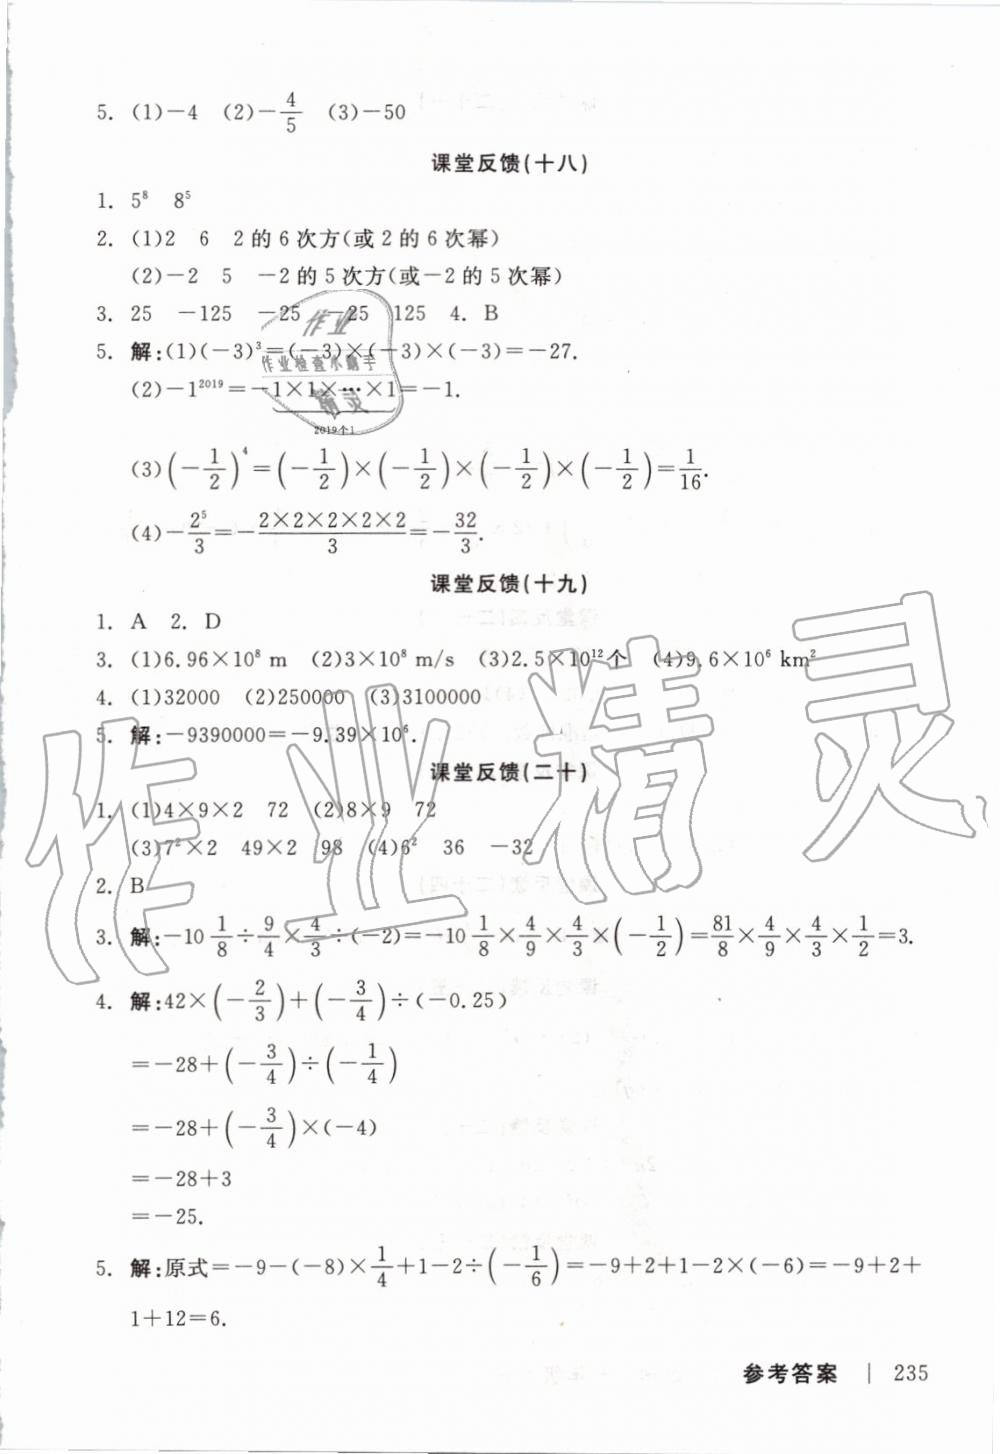 5. (1)－4 (2)－4/5 (3)－50
课堂反馈(十八)
1. 5⁸ 8⁵
2. (1)2 6 2的6次方(或2的6次幂)
(2)－2 5 －2的5次方(或－2的5次幂)
3. 25 －125 －25 －25 125 4. B
5. 解:(1)(－3)³＝(－3)×(－3)×(－3)＝－27.
(2)－1²⁰¹⁹＝－1×1×…×1＝－1.
2019个1
(3)(－1/2)⁴＝(－1/2)×(－1/2)×(－1/2)×(－1/2)＝1/16.
(4)－2⁵/3＝－2×2×2×2×2/3＝－32/3.
课堂反馈(十九)
1. A 2. D
3. (1)6.96×10⁸ m (2)3×10⁸ m/s (3)2.5×10¹²个 (4)9.6×10⁶ km²
4. (1)32000 (2)250000 (3)3100000
5. 解:－9390000＝－9.39×10⁶.
课堂反馈(二十)
1. (1)4×9×2 72 (2)8×9 72
(3)7²×2 49×2 98 (4)6² 36 －32
2. B
3. 解:－10 1/8÷9/4×4/3÷(－2)＝－10 1/8×4/9×4/3×(－1/2)＝81/8×4/9×4/3×1/2＝3.
4. 解:42×(－2/3)＋(－3/4)÷(－0.25)
＝－28＋(－3/4)÷(－1/4)
＝－28＋(－3/4)×(－4)
＝－28＋3
＝－25.
5. 解:原式＝－9－(－8)×1/4＋1－2÷(－1/6)＝－9＋2＋1－2×(－6)＝－9＋2＋
1＋12＝6.
参考答案 | 235
作业
作业检查小助手
精灵
作业精灵